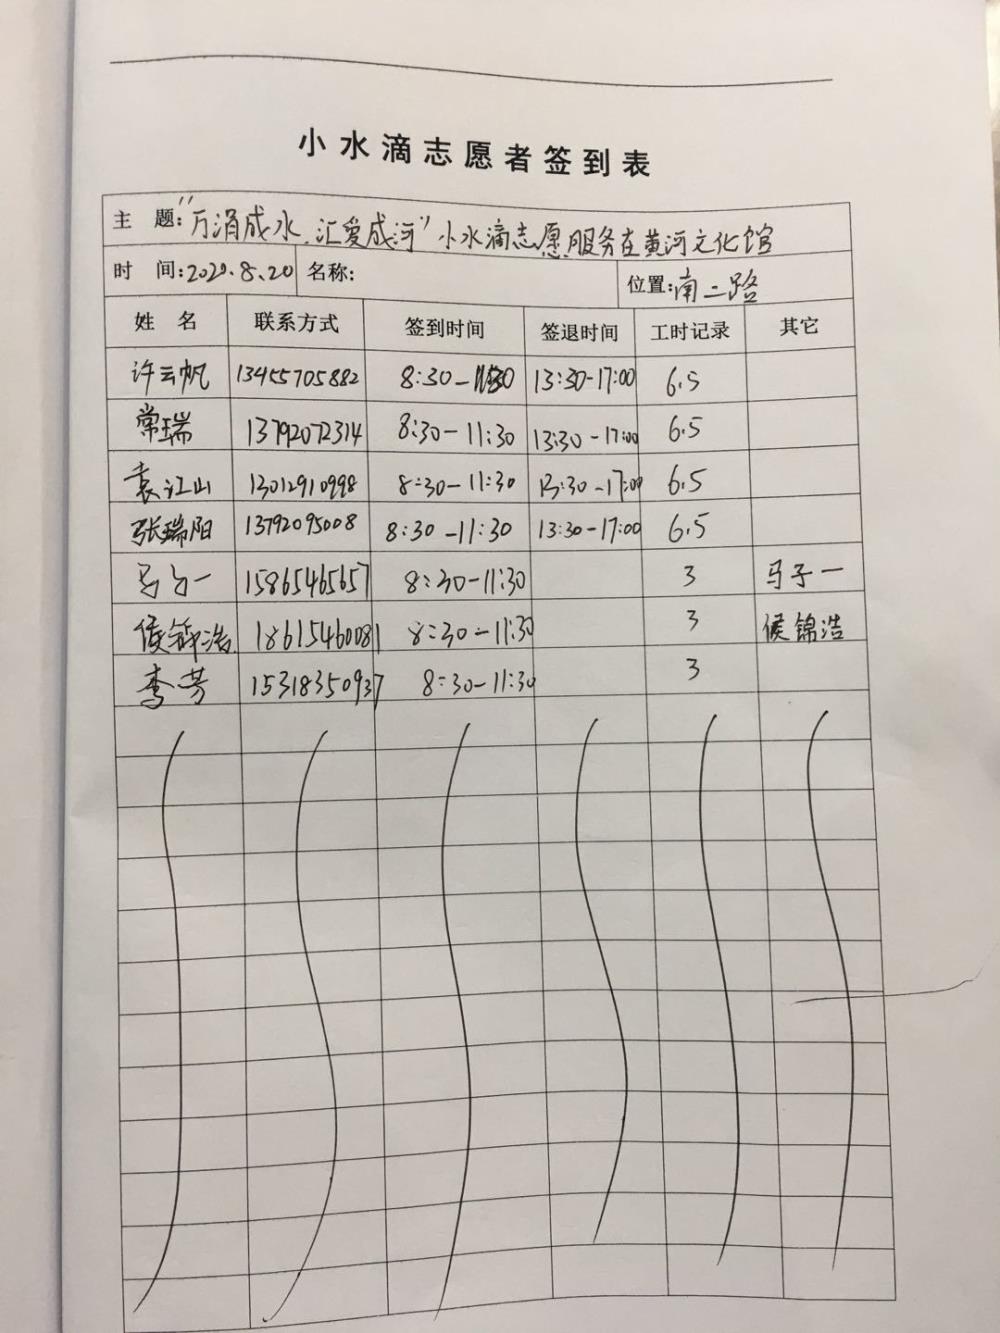 小水滴志愿者签到表
主 题:"万涓成水.汇爱成河"小水滴志愿服务在黄河文化馆
时 间:2020.8.20 名称: 位置:南二路
姓 名 联系方式 签到时间 签退时间 工时记录 其它
许云帆 13455705882 8:30-11:30 13:30-17:00 6.5
常瑞 13792072314 8:30-11:30 13:30-17:00 6.5
袁江山 13012910998 8:30-11:30 13:30-17:00 6.5
张瑞阳 13792095008 8:30-11:30 13:30-17:00 6.5
马子一 15865465657 8:30-11:30 3 马子一
侯锦浩 18615460081 8:30-11:30 3 侯锦浩
李芳 15318350937 8:30-11:30 3